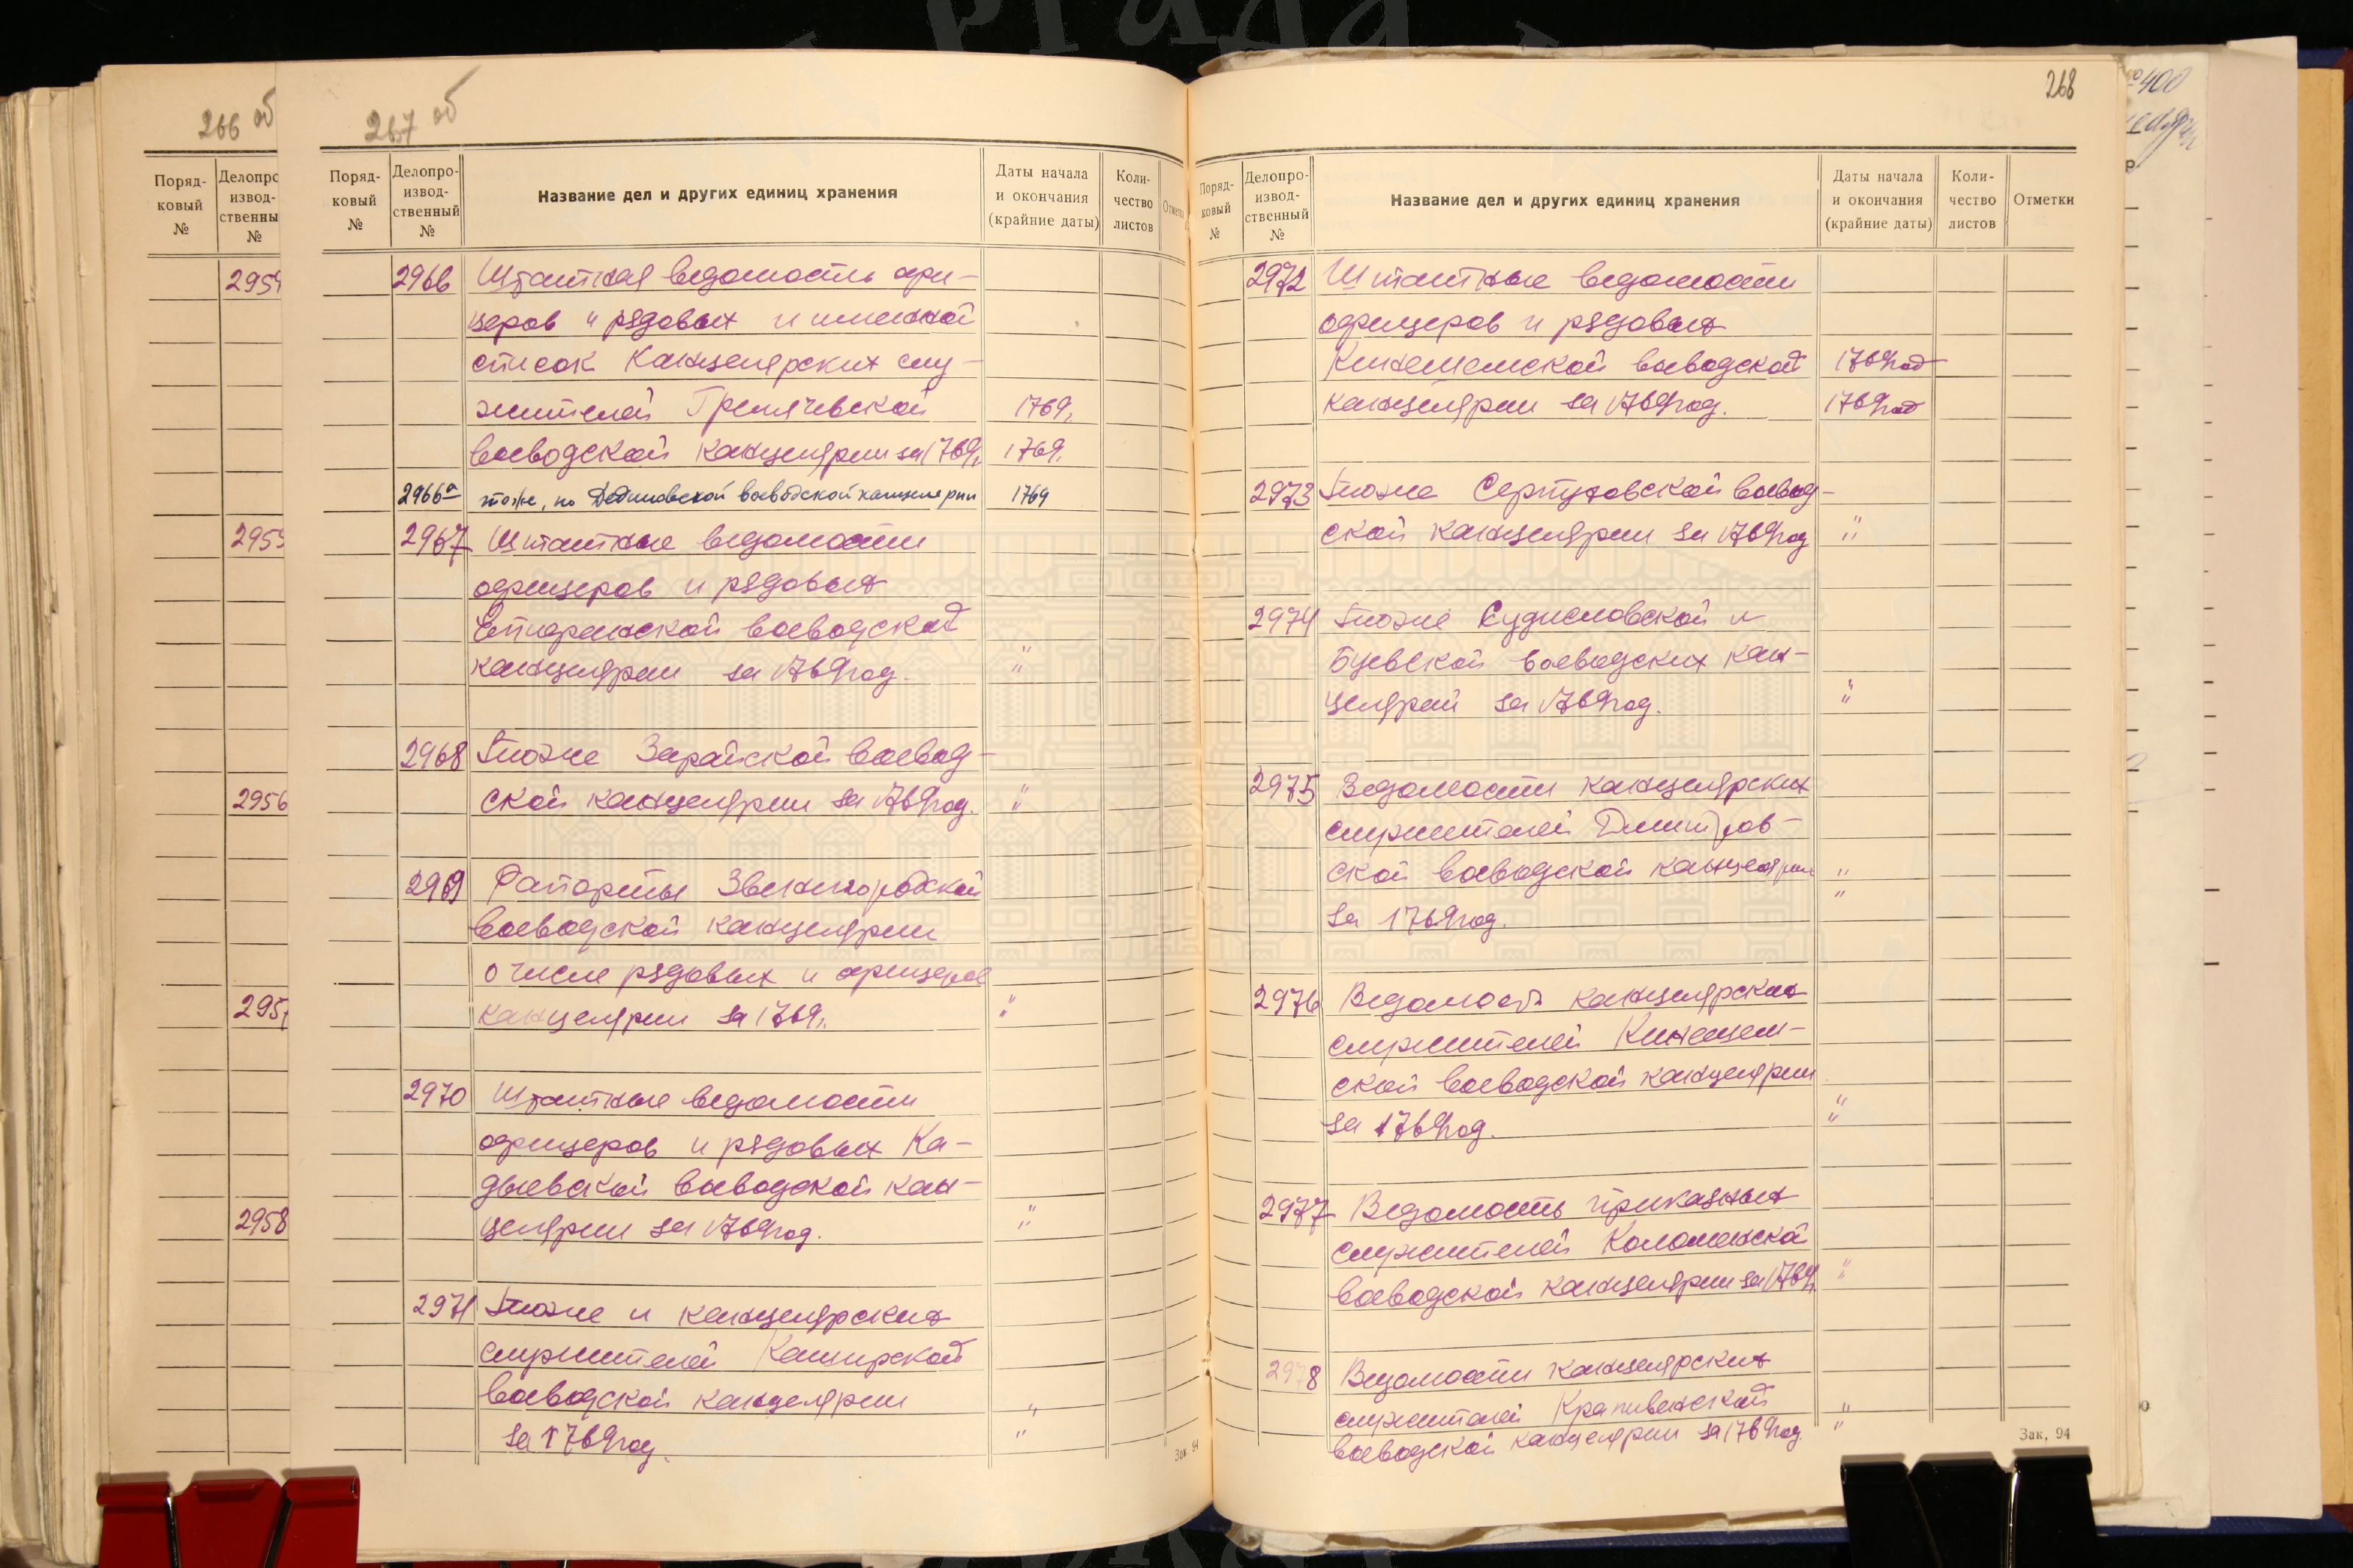 266 об
Поряд-
ковый
№
Делопро
извод-
ственны
№
2955
2956
2958
267 об
Поряд-
ковый
№
Делопро-
извод-
ственный
№
Название дел и других единиц хранения
Даты начала
и окончания
(крайние даты)
Коли-
чество
листов
2966 Штатная ведомость офи-
церов и рядовых и именной
список канцелярских слу-
жителей Гремячевской 1769г.
воеводской канцелярии за 1769г. 1769г.
2966а тоже, по Дедиловской воеводской канцелярии 1769
2967 Штатные ведомости
офицеров и рядовых
Епифанской воеводской "
канцелярии за 1769 год. "
2968 Тоже Зарайской воевод-
ской канцелярии за 1769 год. "
2969 Рапорты Звенигородской
воеводской канцелярии
о числе рядовых и офицеров
канцелярии за 1769г. "
2970 Штатные ведомости
офицеров и рядовых Ка-
дыевской воеводской кан-
целярии за 1769 год. "
2971 Тоже и канцелярских
служителей Каширской
воеводской канцелярии "
за 1769 год. "
Зак. 94
268
Поряд-
ковый
№
Делопро-
извод-
ственный
№
Название дел и других единиц хранения
Даты начала
и окончания
(крайние даты)
Коли-
чество
листов
Отметки
2972 Штатные ведомости
офицеров и рядовых
Кинешемской воеводской 1769 год
канцелярии за 1769 год. 1769 год
2973 Тоже Серпуховской воевод-
ской канцелярии за 1769 год "
2974 Тоже Судиславской и
Буевской воеводских кан-
целярий за 1769 год. "
2975 Ведомости канцелярских
служителей Дмитров-
ской воеводской канцелярии "
за 1769 год. "
2976 Ведомость канцелярских
служителей Кинешем-
ской воеводской канцелярии "
за 1769 год. "
2977 Ведомость приказных
служителей Коломенской
воеводской канцелярии за 1769г. "
2978 Ведомости канцелярских
служителей Крапивенской "
воеводской канцелярии за 1769 год. "
Зак. 94
400